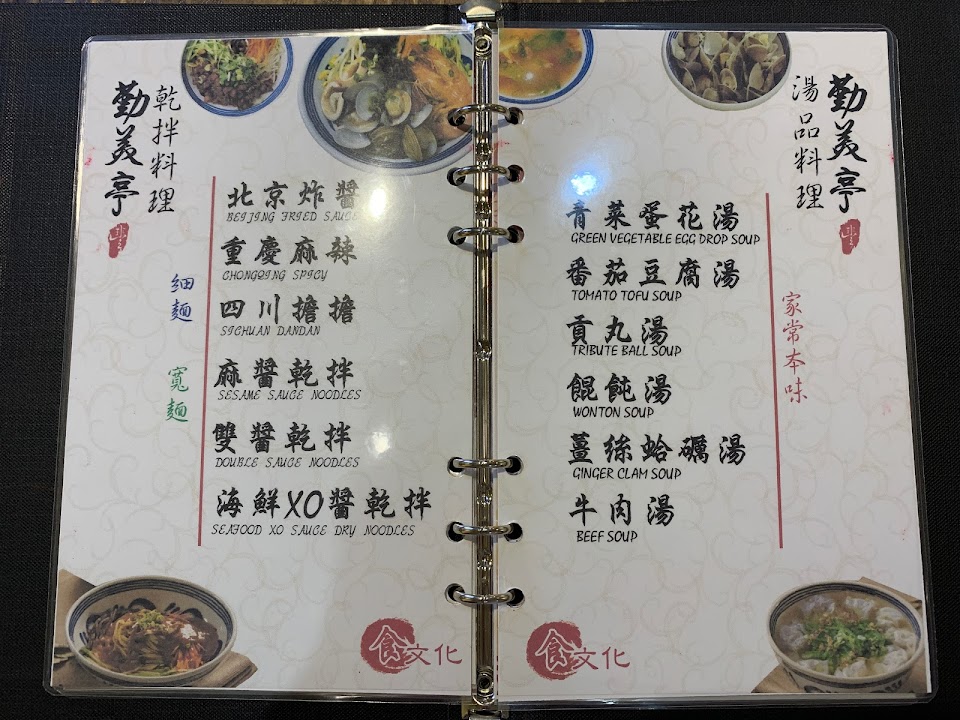 勤美亭
乾拌料理
細麵
寬麵
北京炸醬
BEIJING FRIED SAUCE
重慶麻辣
CHONGQING SPICY
四川擔擔
SICHUAN DANDAN
麻醬乾拌
SESAME SAUCE NOODLES
雙醬乾拌
DOUBLE SAUCE NOODLES
海鮮XO醬乾拌
SEAFOOD XO SAUCE DRY NOODLES
食文化
勤美亭
湯品料理
家常本味
青菜蛋花湯
GREEN VEGETABLE EGG DROP SOUP
番茄豆腐湯
TOMATO TOFU SOUP
貢丸湯
TRIBUTE BALL SOUP
餛飩湯
WONTON SOUP
薑絲蛤礪湯
GINGER CLAM SOUP
牛肉湯
BEEF SOUP
食文化